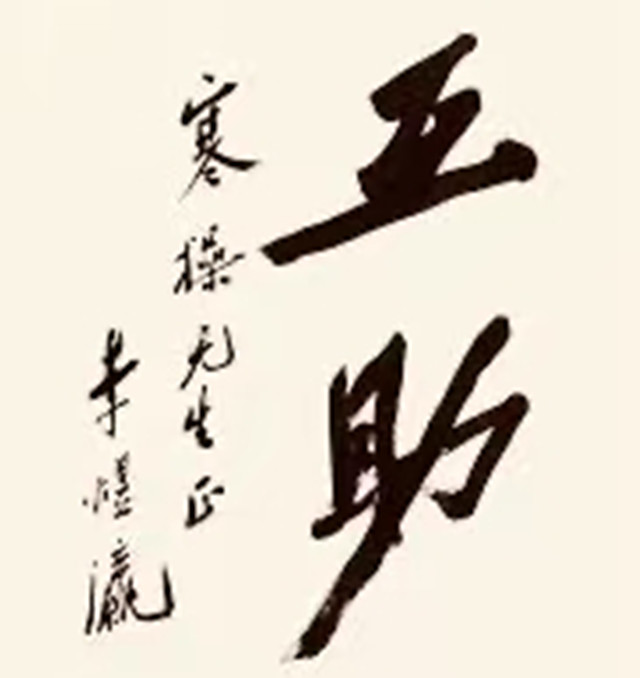 互助
寒操先生正
李煜瀛